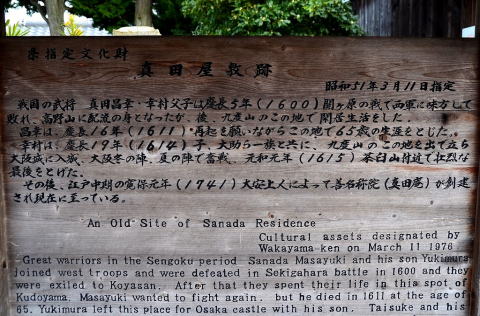 県指定文化財
真田屋敷跡
昭和51年3月11日指定
戦国の武将 真田昌幸・幸村父子は慶長5年(1600)関ヶ原の戦で西軍に味方して
敗れ、高野山に配流の身となったが、後、九度山のこの地で閑居生活をした。
昌幸は、慶長16年(1611)再起を願いながらこの地で65歳の生涯をとじた。
幸村は、慶長19年(1614)子、大助ら一族と共に、九度山のこの地を出て立ち
大阪城に入城、大阪冬の陣、夏の陣で奮戦、元和元年(1615)茶臼山付近で壮烈な
最後をとげた。
その後、江戸中期の寛保元年(1741)大安上人によって善名称院(真田庵)が創建
され現在に至っている。
An Old Site of Sanada Residence
Cultural assets designated by
Wakayama-ken on March 11 1976.
Great warriors in the Sengoku period Sanada Masayuki and his son Yukimura
joined west troops and were defeated in Sekigahara battle in 1600 and they
were exiled to Koyasan. After that they spent their life in this spot of
Kudoyama. Masayuki wanted to fight again. but he died in 1611 at the age of
65. Yukimura left this place for Osaka castle with his son. Taisuke and his